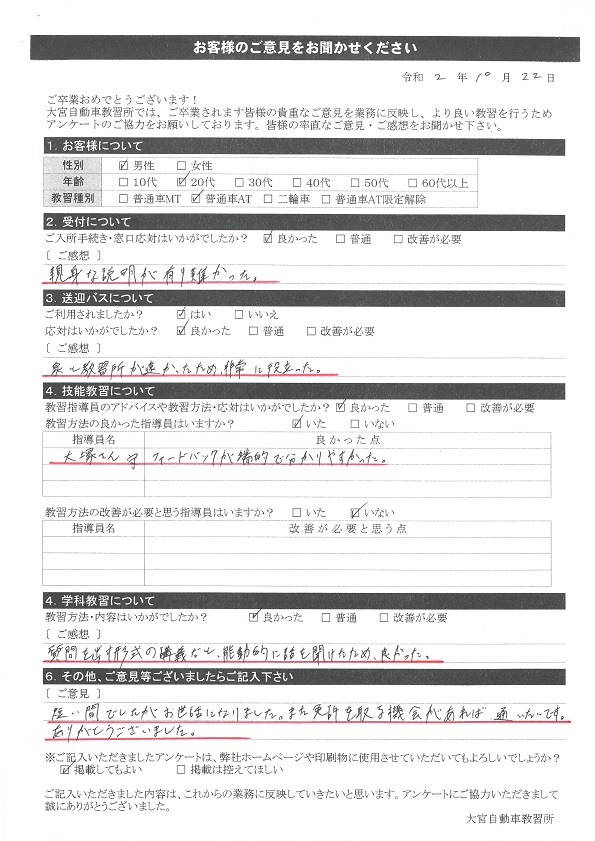 お客様のご意見をお聞かせください
令和 2 年 10 月 22 日
ご卒業おめでとうございます!
大宮自動車教習所では、ご卒業されます皆様の貴重なご意見を業務に反映し、より良い教習を行うため
アンケートのご協力をお願いしております。皆様の率直なご意見・ご感想をお聞かせ下さい。
1. お客様について
性別 ☑ 男性 □ 女性
年齢 □ 10代 ☑ 20代 □ 30代 □ 40代 □ 50代 □ 60代以上
教習種別 □ 普通車MT ☑ 普通車AT □ 二輪車 □ 普通車AT限定解除
2. 受付について
ご入所手続き・窓口応対はいかがでしたか? ☑ 良かった □ 普通 □ 改善が必要
[ ご感想 ]
親身な説明が有り難かった。
3. 送迎バスについて
ご利用されましたか? ☑ はい □ いいえ
応対はいかがでしたか? ☑ 良かった □ 普通 □ 改善が必要
[ ご感想 ]
家と教習所が遠かったため、非常に役立った。
4. 技能教習について
教習指導員のアドバイスや教習方法・応対はいかがでしたか? ☑ 良かった □ 普通 □ 改善が必要
教習方法の良かった指導員はいますか? ☑ いた □ いない
指導員名 良かった点
大塚さん フィードバックが端的で分かりやすかった。
教習方法の改善が必要と思う指導員はいますか? □ いた ☑ いない
指導員名 改善が必要と思う点
4. 学科教習について
教習方法・内容はいかがでしたか? ☑ 良かった □ 普通 □ 改善が必要
[ ご感想 ]
質問を出す形式の講義など、能動的に話を聞けたため、良かった。
6. その他、ご意見等ございましたらご記入下さい
[ ご意見 ]
短い間でしたがお世話になりました。また免許を取る機会があれば 通いたいです。
ありがとうございました。
※ご記入いただきましたアンケートは、弊社ホームページや印刷物に使用させていただいてもよろしいでしょうか?
☑ 掲載してもよい □ 掲載は控えてほしい
ご記入いただきました内容は、これからの業務に反映していきたいと思います。アンケートにご協力いただきまして
誠にありがとうございました。
大宮自動車教習所